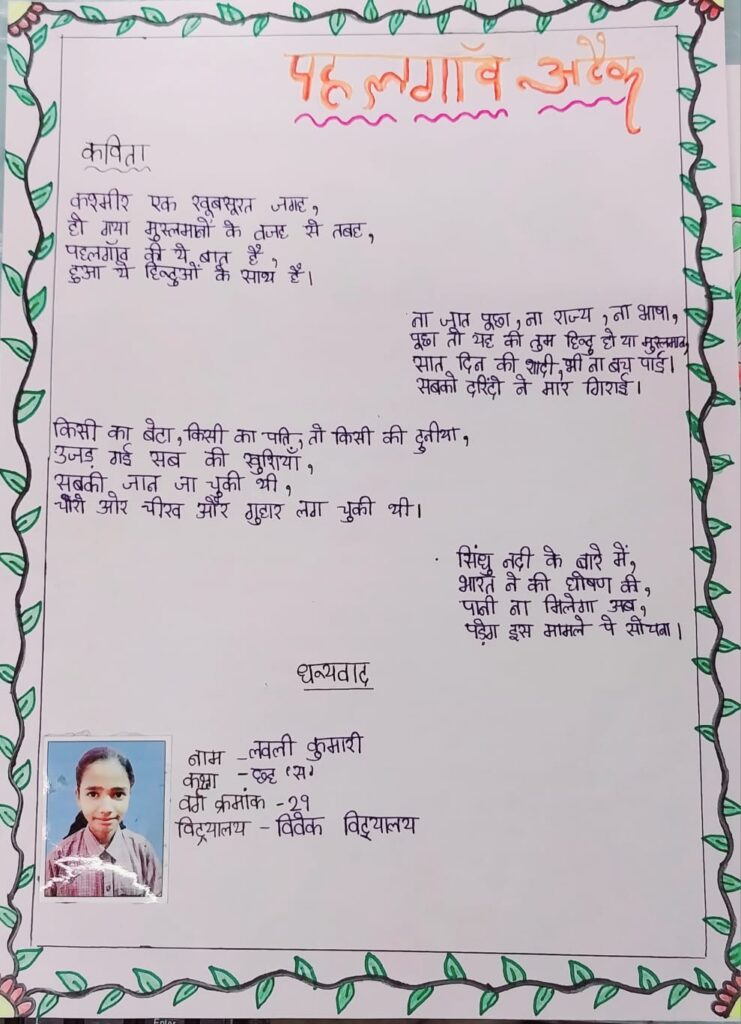 पहलगाँव अटैक
कविता
कश्मीर एक खूबसूरत जगह,
हो गया मुस्लमानों के वजह से तबह,
पहलगाँव की ये बात है,
हुआ ये हिन्दुओं के साथ है।
ना जात पूछा, ना राज्य, ना भाषा,
पूछा तो यह की तुम हिन्दु हो या मुस्लमान,
सात दिन की शादी, भी ना बच पाई।
सबको दरिंदो ने मार गिराई।
किसी का बेटा, किसी का पति, तो किसी की दुनीया,
उजड़ गई सब की खुशियाँ,
सबकी जान जा चुकी थी,
चारो ओर चीख और गुहार लग चुकी थी।
सिंधु नदी के बारे में,
भारत ने की घोषण की,
पानी ना मिलेगा अब,
पड़ेग इस मामले पे सोचना।
धन्यवाद
नाम - लवली कुमारी
कक्षा - छह 'स'
वर्ग क्रमांक - 29
विद्यालय - विवेक विद्यालय
Enter